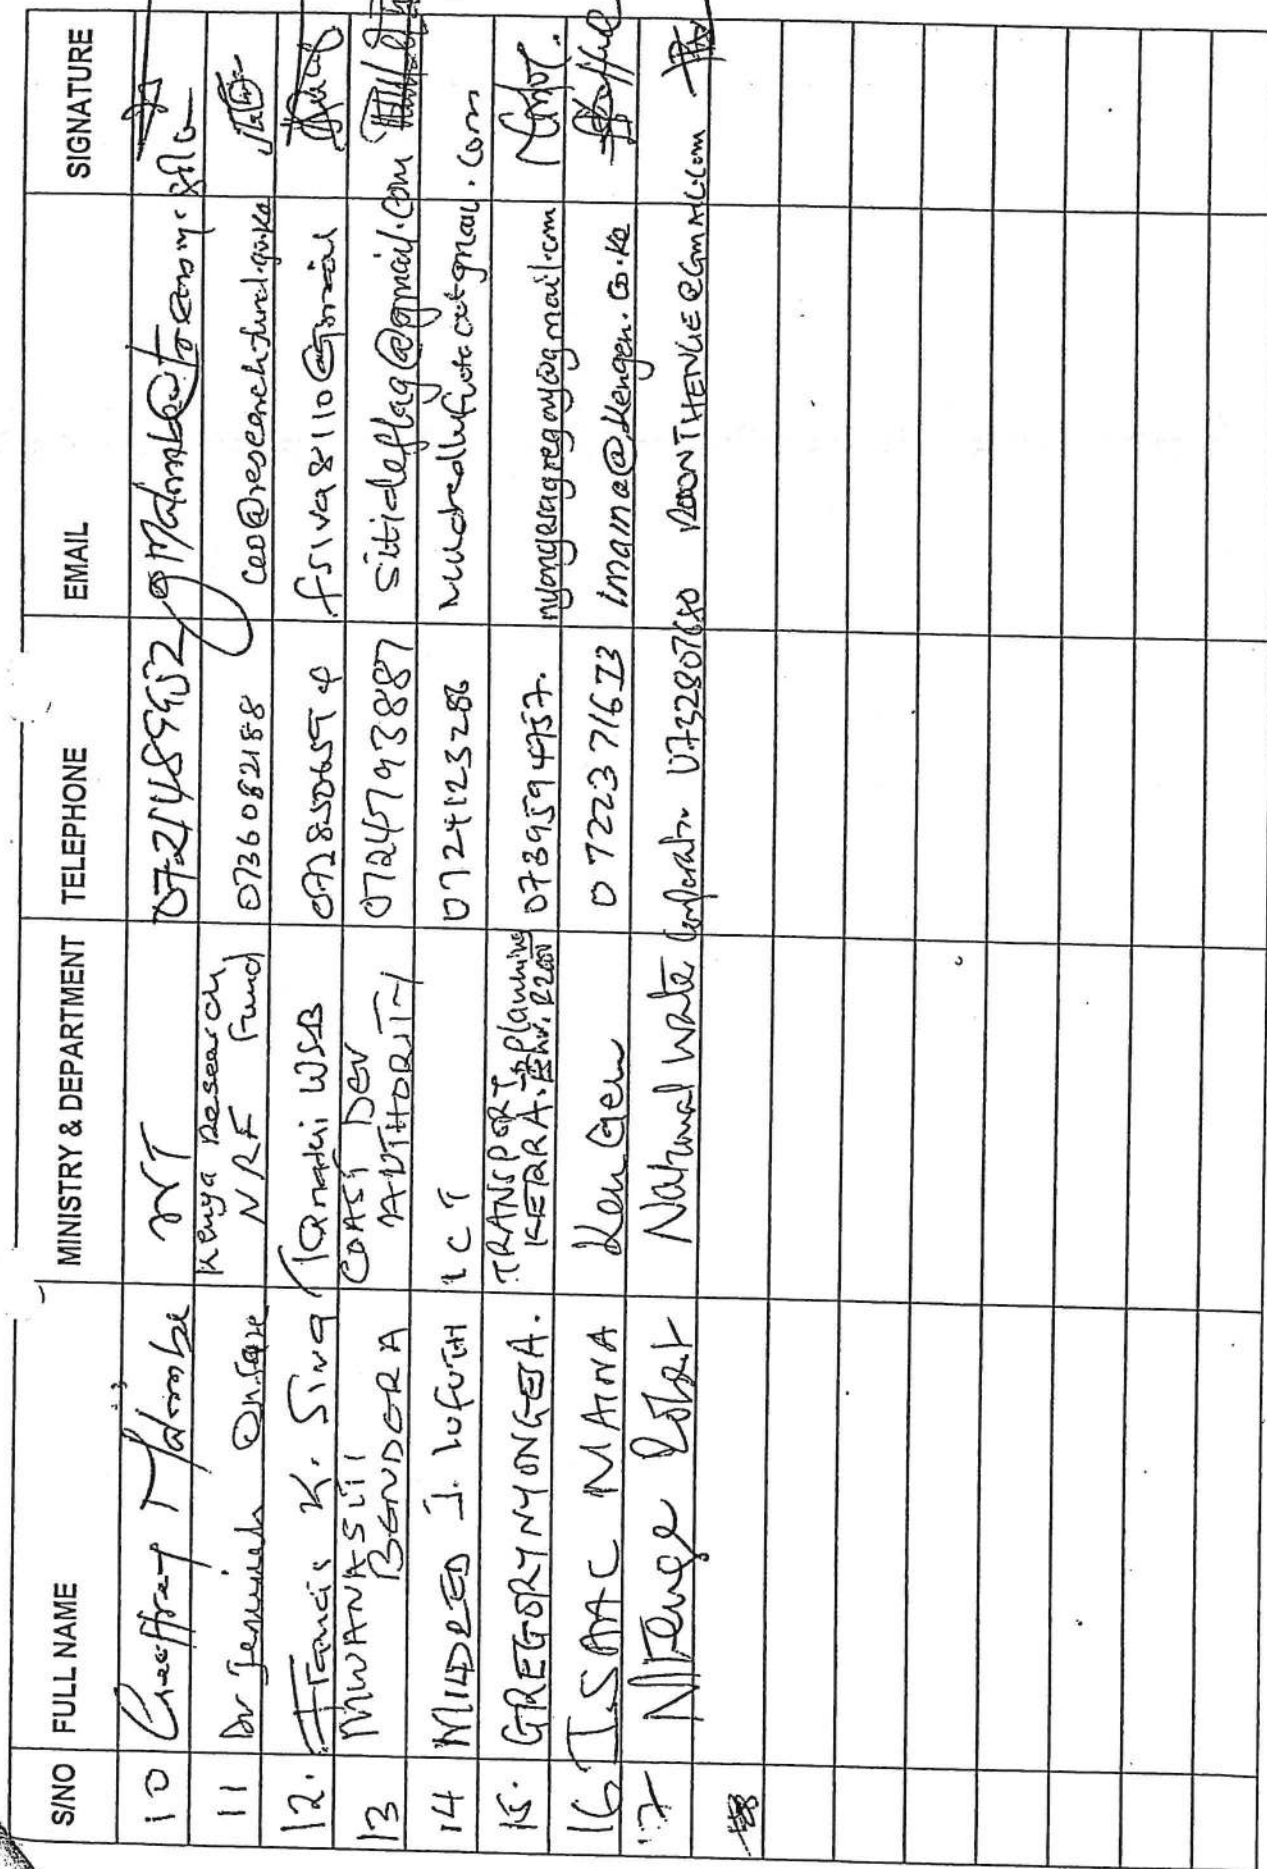 S/NO FULL NAME MINISTRY & DEPARTMENT TELEPHONE EMAIL SIGNATURE
10 Geoffrey Malombe NT
11 Dr Jemimah Onsare Kenya Research
NRF Fund 0736082188 ceo@researchfund.go.ke
12. Francis K. Siva Tanathi WSB fsiva8110@gmail
13 MWANASITI
BENDERA COAST DEV
AUTHORITY 0724793887 Sitideflag@gmail.com
14 MILDRED J. lofuth ICT 0724123286
15. GREGORY NYONGESA. TRANSPORT
KERRA. Planning 0739594957. nyongesagregory@gmail.com
16 ISAAC MAINA KenGen 0722371673 imaina@kengen.co.ke
17 Nthenge Robert National Water Corporation 0732807680 ROBNTHENGE@GMAIL.com